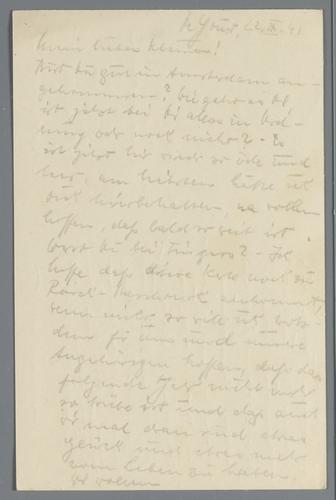 mein lieber Kleiner!
Bist du gut in Amsterdam an-
gekommen? Wie geht es Dir
ist jetzt bei Dir alles in Ord-
nung oder noch nicht? - Es
ist jetzt hier so öde und
leer, am liebsten hätte ich
dich hierbehalten, na wollen
hoffen, daß bald so weit ist
warst du bei - Ich
hoffe daß diese Karte noch zu
ankommt,
wenn nicht, so will ich trotz-
dem für uns und unsere
Angehörigen hoffen, daß das
folgende Jahr nicht mehr
so trübe ist und daß auch
wir mal dran sind etwas
Glück und etwas mehr
vom Leben zu haben.
wir wollen